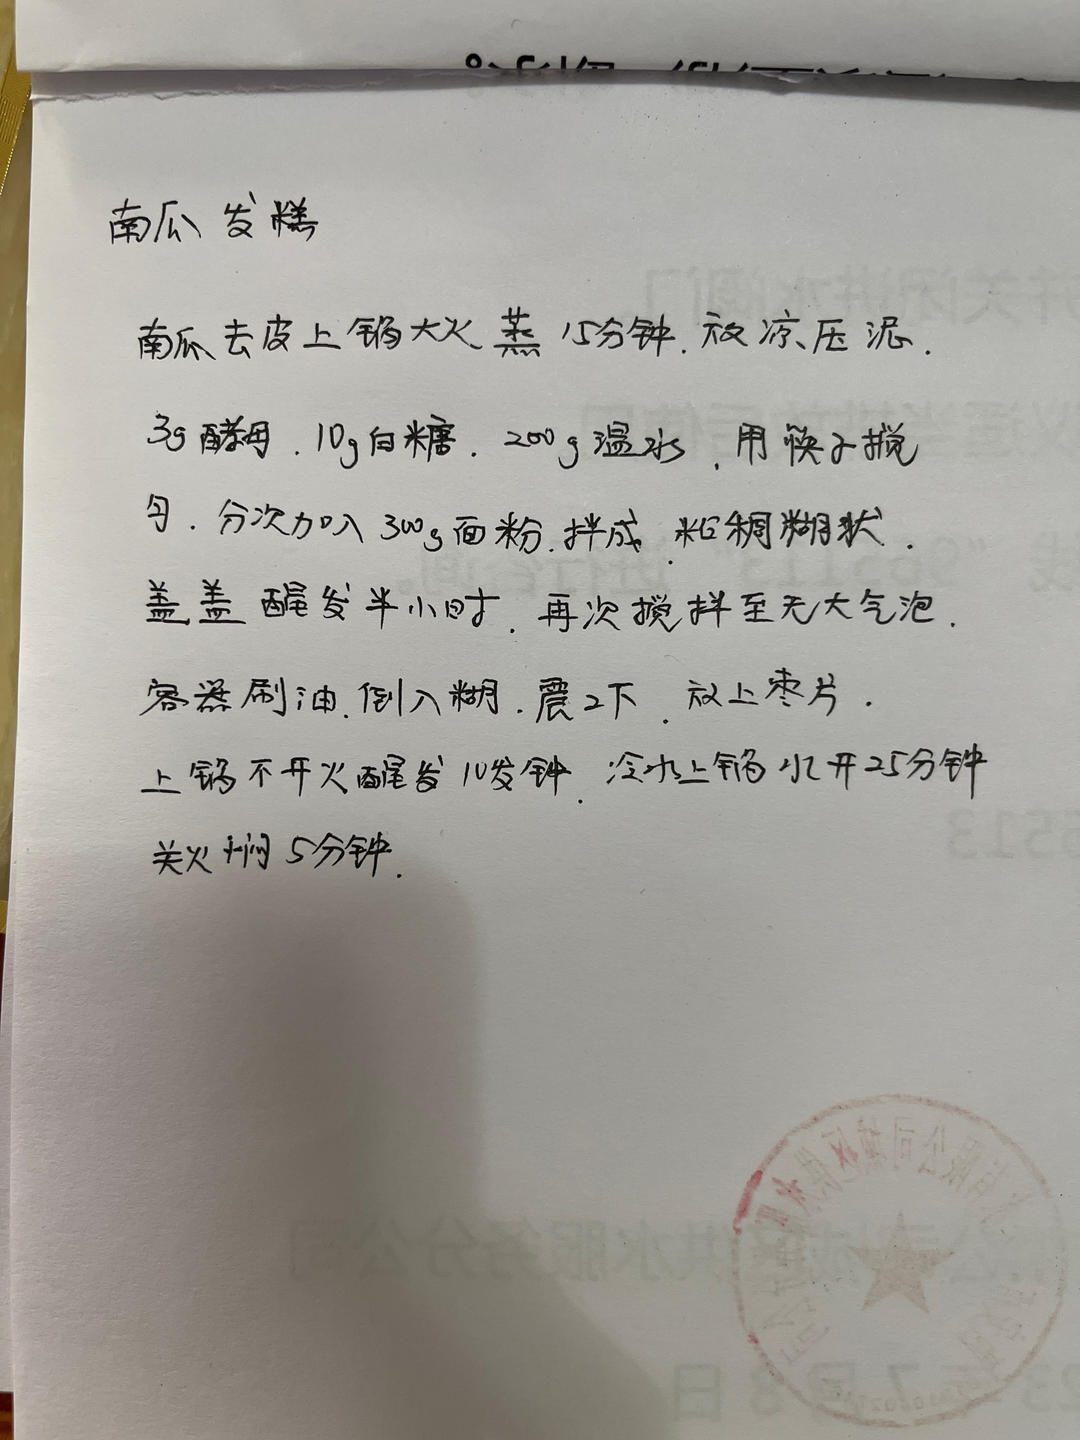 南瓜发糕
南瓜去皮上锅大火蒸15分钟.放凉压泥.
3g酵母.10g白糖.200g温水.用筷子搅
匀.分次加入300g面粉.拌成粘稠糊状.
盖盖醒发半小时.再次搅拌至无大气泡.
容器刷油.倒入糊.震2下.放上枣片.
上锅不开火醒发10发钟.冷水上锅水开25分钟
关火焖5分钟.